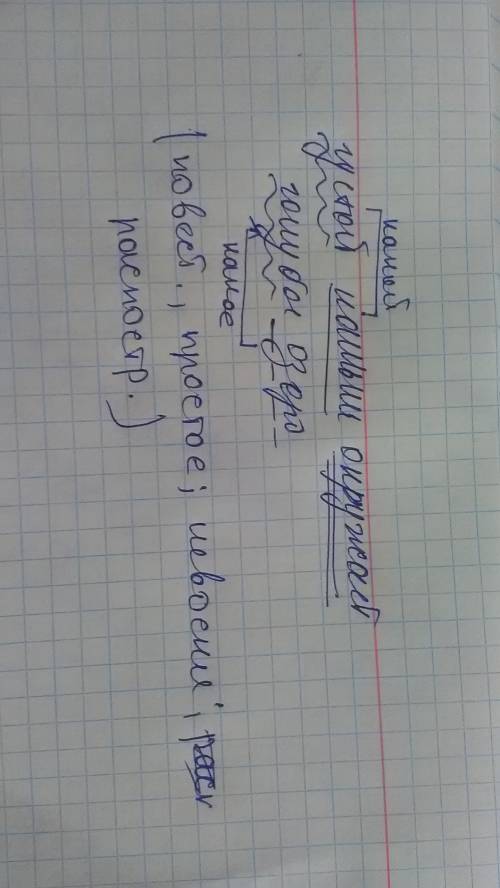 какой
густой камыш окружает
голубое озеро
какое
(повест., простое, невоскл,
распостр.)